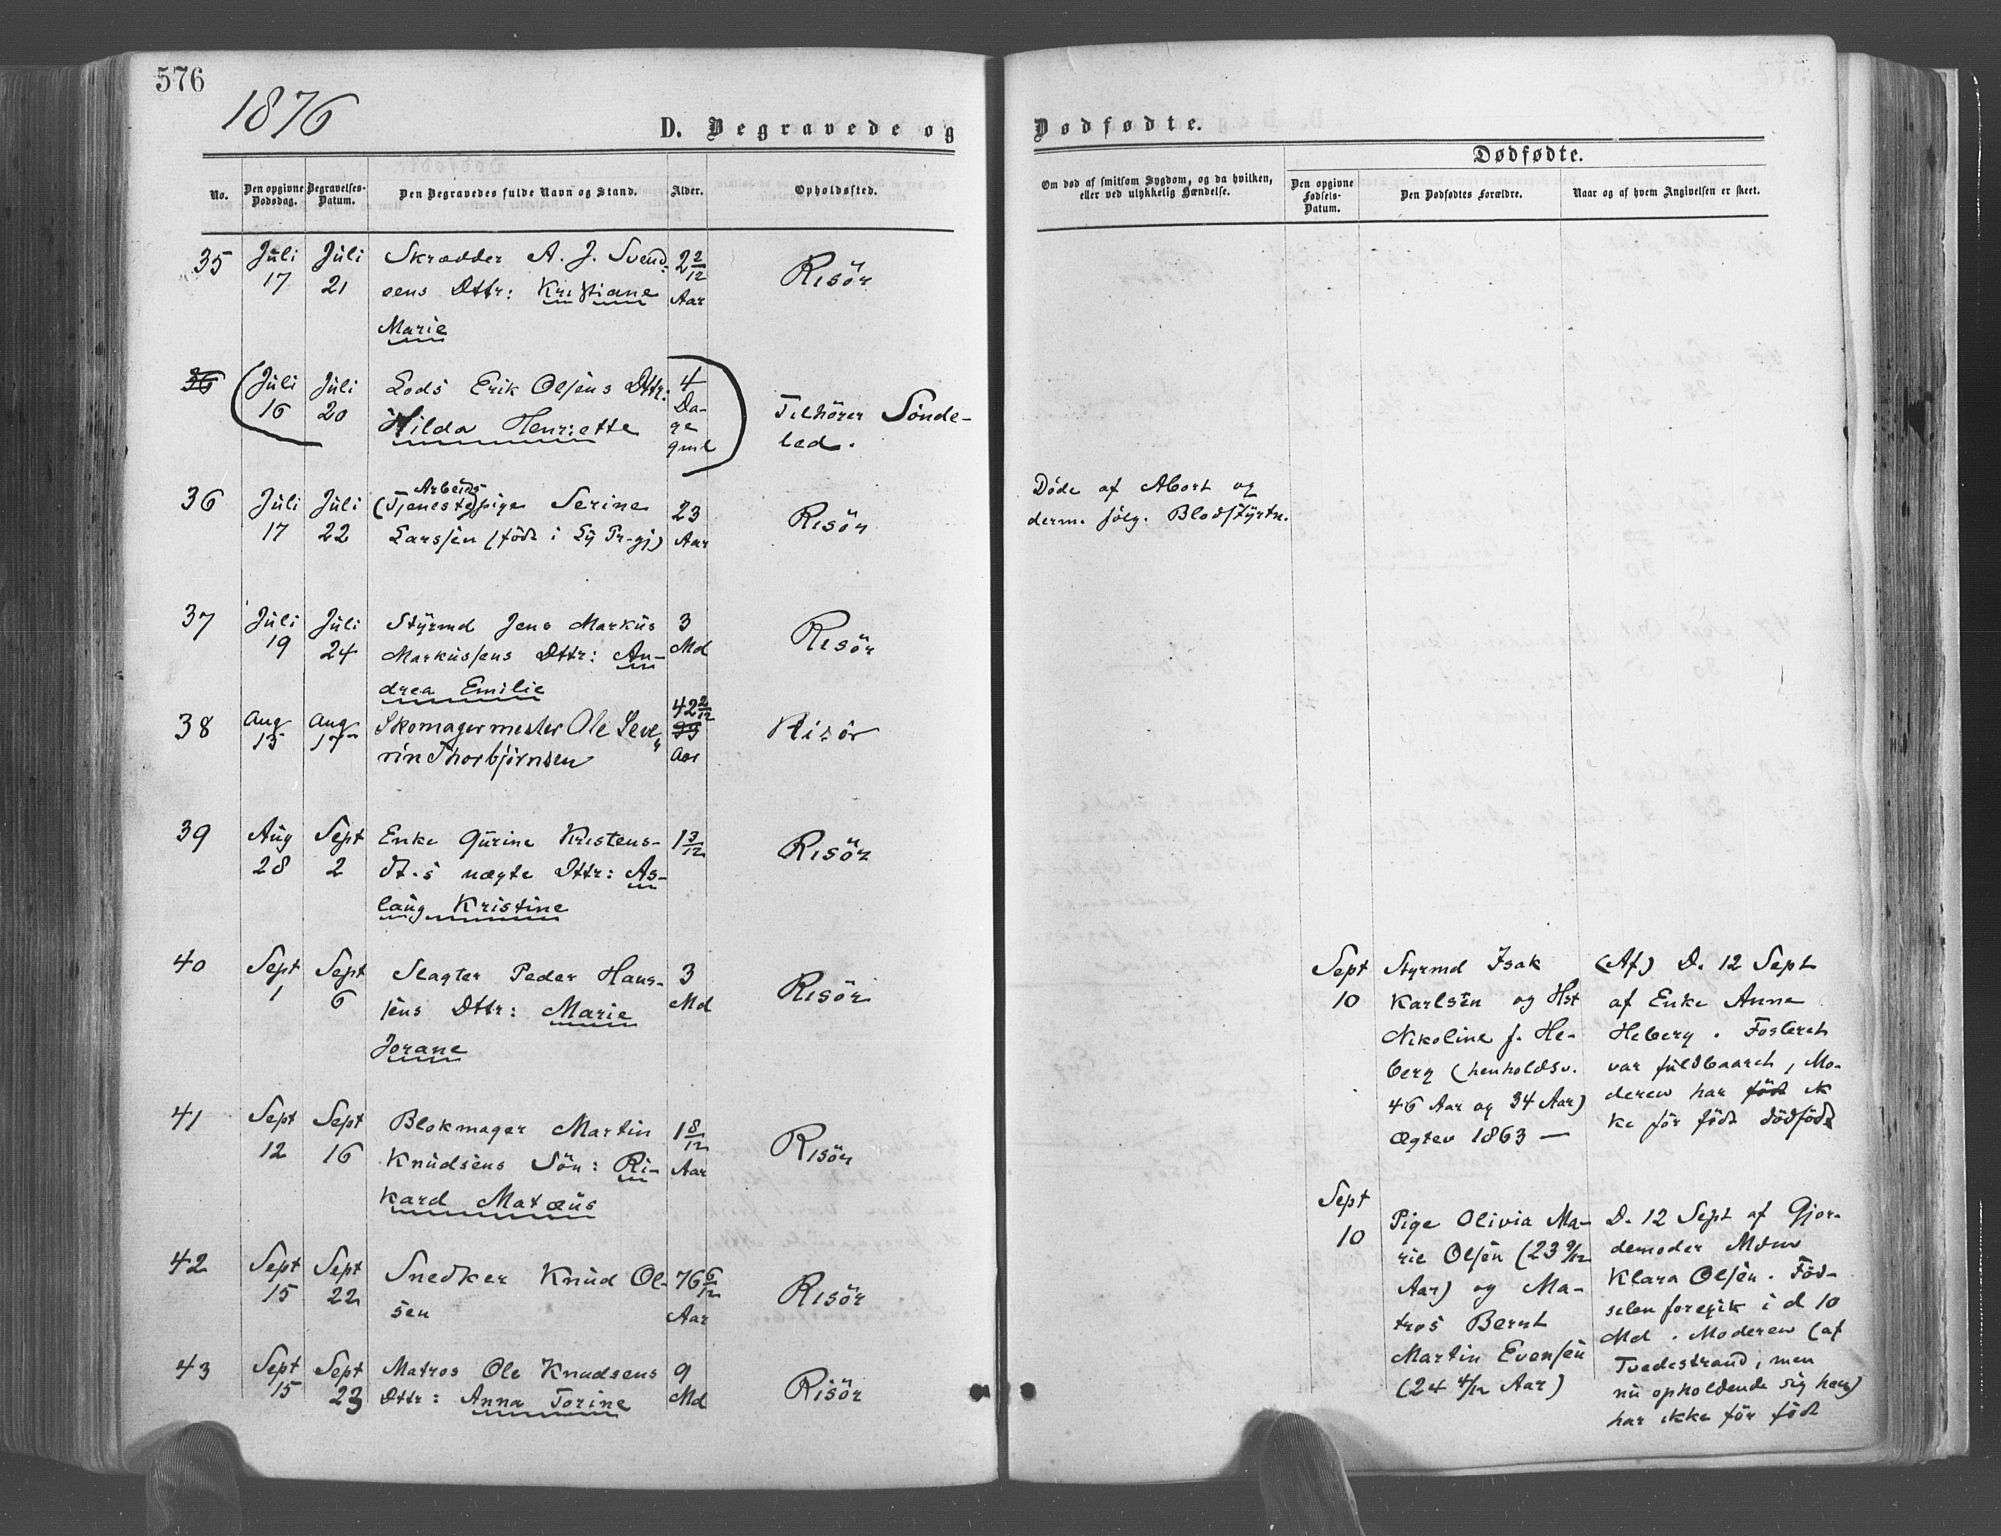 576
1876
D. Begravede og
No.
Den opgivne Dødsdag.
Begravelses-Datum.
Den Begravedes fulde Navn og Stand.
Alder.
Opholdssted.
35
Juli
17
Juli
21
Skrædder A. J. Svend-
sens Dttr: Kristiane
Marie
2 2/12
Aar
Risör
36
Juli
16
Juli
20
Lods Erik Olsens Dttr:
Hilda Henriette
4
Da-
ge
gml
Tilhörer Sönde-
led.
36
Juli
17
Juli
22
Arbeids
(Tjeneste)pige Serine
Larssen (födt i Prgj)
23
Aar
Risör
37
Juli
19
Juli
24
Styrmd Jens Markus
Markussens Dttr: An-
drea Emilie
3
Md
Risör
38
Aug
13
Aug
17
Skomagermester Ole Seve-
rin Thorbjörnsen
42 2/12
Aar
Risör
39
Aug
28
Sept
2
Enke Gurine Kristens-
dt.s uægte Dttr: As-
laug Kristine
1 3/12
Risör
40
Sept
1
Sept
6
Slagter Peder Hans-
sens Dttr: Marie
Jorane
3
Md
Risör
41
Sept
12
Sept
16
Blokmager Martin
Knudsens Sön: Ri-
kard Matæus
1 8/12
Aar
Risör
42
Sept
15
Sept
22
Snedker Knud Ol-
sen
76 6/12
Aar
Risör
43
Sept
15
Sept
23
Matros Ole Knudsens
Dttr: Anna Torine
9
Md
Risör
Dødfødte.
Om død af smitsom Sygdom, og da hvilken,
eller ved ulykkelig Hændelse.
Dødfødte.
Den opgivne
Fødsels-
Datum.
Den Dødfødtes Forældre.
Naar og af hvem Angivelsen er skeet.
Döde af Abort og
derm. fölg. Blodstyrtn.
Sept
10
Styrmd Isak
Karlsen og Hst
Nikoline f. He-
berg (henholdsv.
46 Aar og 34 Aar)
Ægtev 1863 —
(Af) D. 12 Sept
af Enke Anne
Heberg. Fosteret
var fuldbaaret, Mo-
deren har födt ik
ke för födt dödfödt
Sept
10
Pige Olivia Ma-
rie Olsen (23 9/12
Aar) og Ma-
tros Bernt
Martin Evensen
(24 4/12 Aar)
D. 12 Sept af Gjor-
demoder Mdm
Klara Olsen. Föd-
selen foregik i d 10
Md. Moderen (af
Tvedestrand, men
nu opholdende sig her)
har ikke för födt